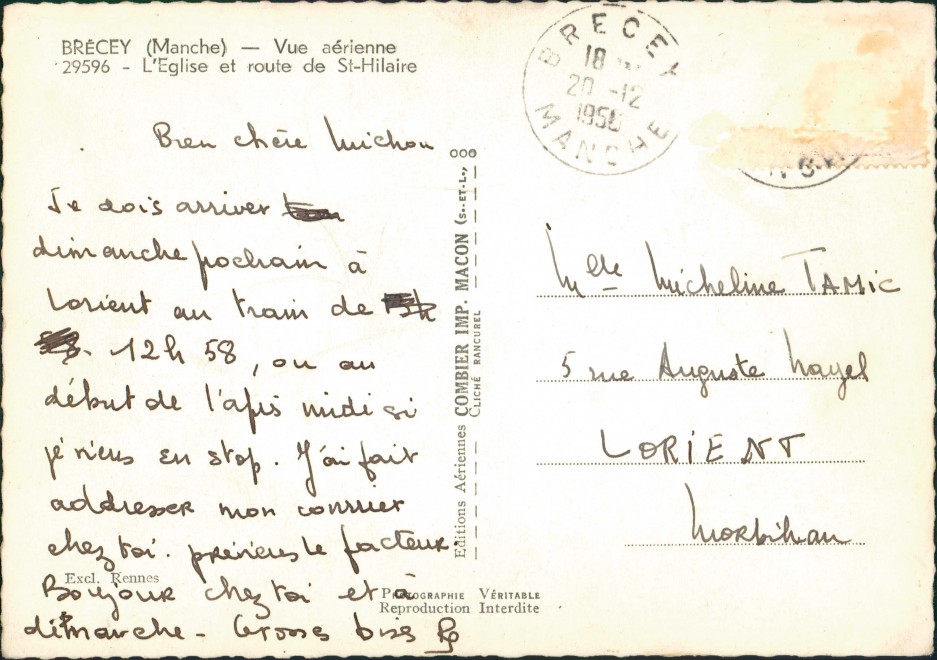 BRÉCEY (Manche) — Vue aérienne
29596 - L'Eglise et route de St-Hilaire
Bien chère Michou
Je dois arriver
dimanche pochain à
Lorient au train de
12h 58, ou au
début de l'après midi si
je viens en stop. J'ai fait
addresser mon courrier
chez toi. préviens le facteur.
Bonjour chez toi et à
dimanche - Grosses bises
Excl. Rennes
Editions Aériennes COMBIER IMP. MACON (S.-ET-L.)
CLICHÉ RANCUREL
PHOTOGRAPHIE VÉRITABLE
Reproduction Interdite
BRECEY
18
20 -12
MANCHE
Mlle Micheline TAMIC
5 rue Auguste Nayel
LORIENT
Morbihan